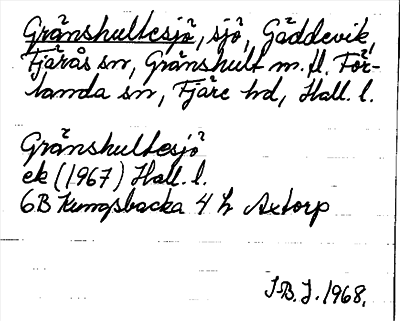 Gränshultesjö, sjö, Gäddevik,
Fjärås sn, Gränshult m.fl. För-
landa sn, Fjäre hd, Hall. l.
Gränshultesjö
ek (1967) Hall. l.
6B Kungsbacka 4 h Axtorp
J.B.J. 1968.